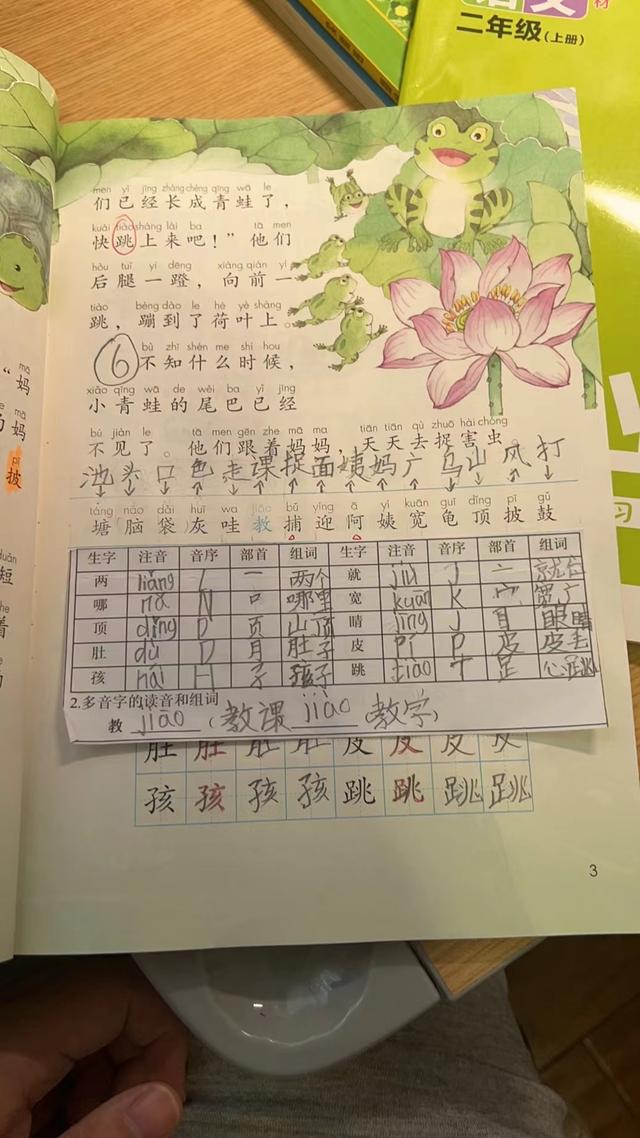 二年级(上册)
men yǐ jīng zhǎng chéng qīng wā le
们已经长成青蛙了，
kuài tiào shàng lái ba tā men
快跳上来吧！”他们
hòu tuǐ yì dēng xiàng qián yí
后腿一蹬，向前一
tiào bèng dào le hé yè shàng
跳，蹦到了荷叶上。
⑥
bù zhī shén me shí hou
不知什么时候，
xiǎo qīng wā de wěi ba yǐ jīng
小青蛙的尾巴已经
bú jiàn le tā men gēn zhe mā ma tiān tiān qù zhuō hài chóng
不见了。他们跟着妈妈，天天去捉害虫。
池头口色走课捉面姨妈广乌山风打
táng nǎo dài huī wa jiāo bǔ yíng ā yí kuān guī dǐng pī gǔ
塘(脑袋)灰哇教捕迎阿姨宽龟顶披鼓
生字 注音 音序 部首 组词 生字 注音 音序 部首 组词
两 liǎng L 一 两个 就 jiù J 亠
哪 nǎ N 口 哪里 宽 kuān K 宀 宽广
顶 dǐng D 页 山顶 睛 jīng J 目 眼睛
肚 dù D 月 肚子 皮 pí P 皮 皮毛
孩 hái H 子 孩子 跳 tiào T 足 心跳
2.多音字的读音和组词
教 jiāo (教课 jiào 教学)
肚 肚 肚 肚 皮 皮 皮 皮
孩 孩 孩 孩 跳 跳 跳 跳
3
妈
妈
披
短
着
习